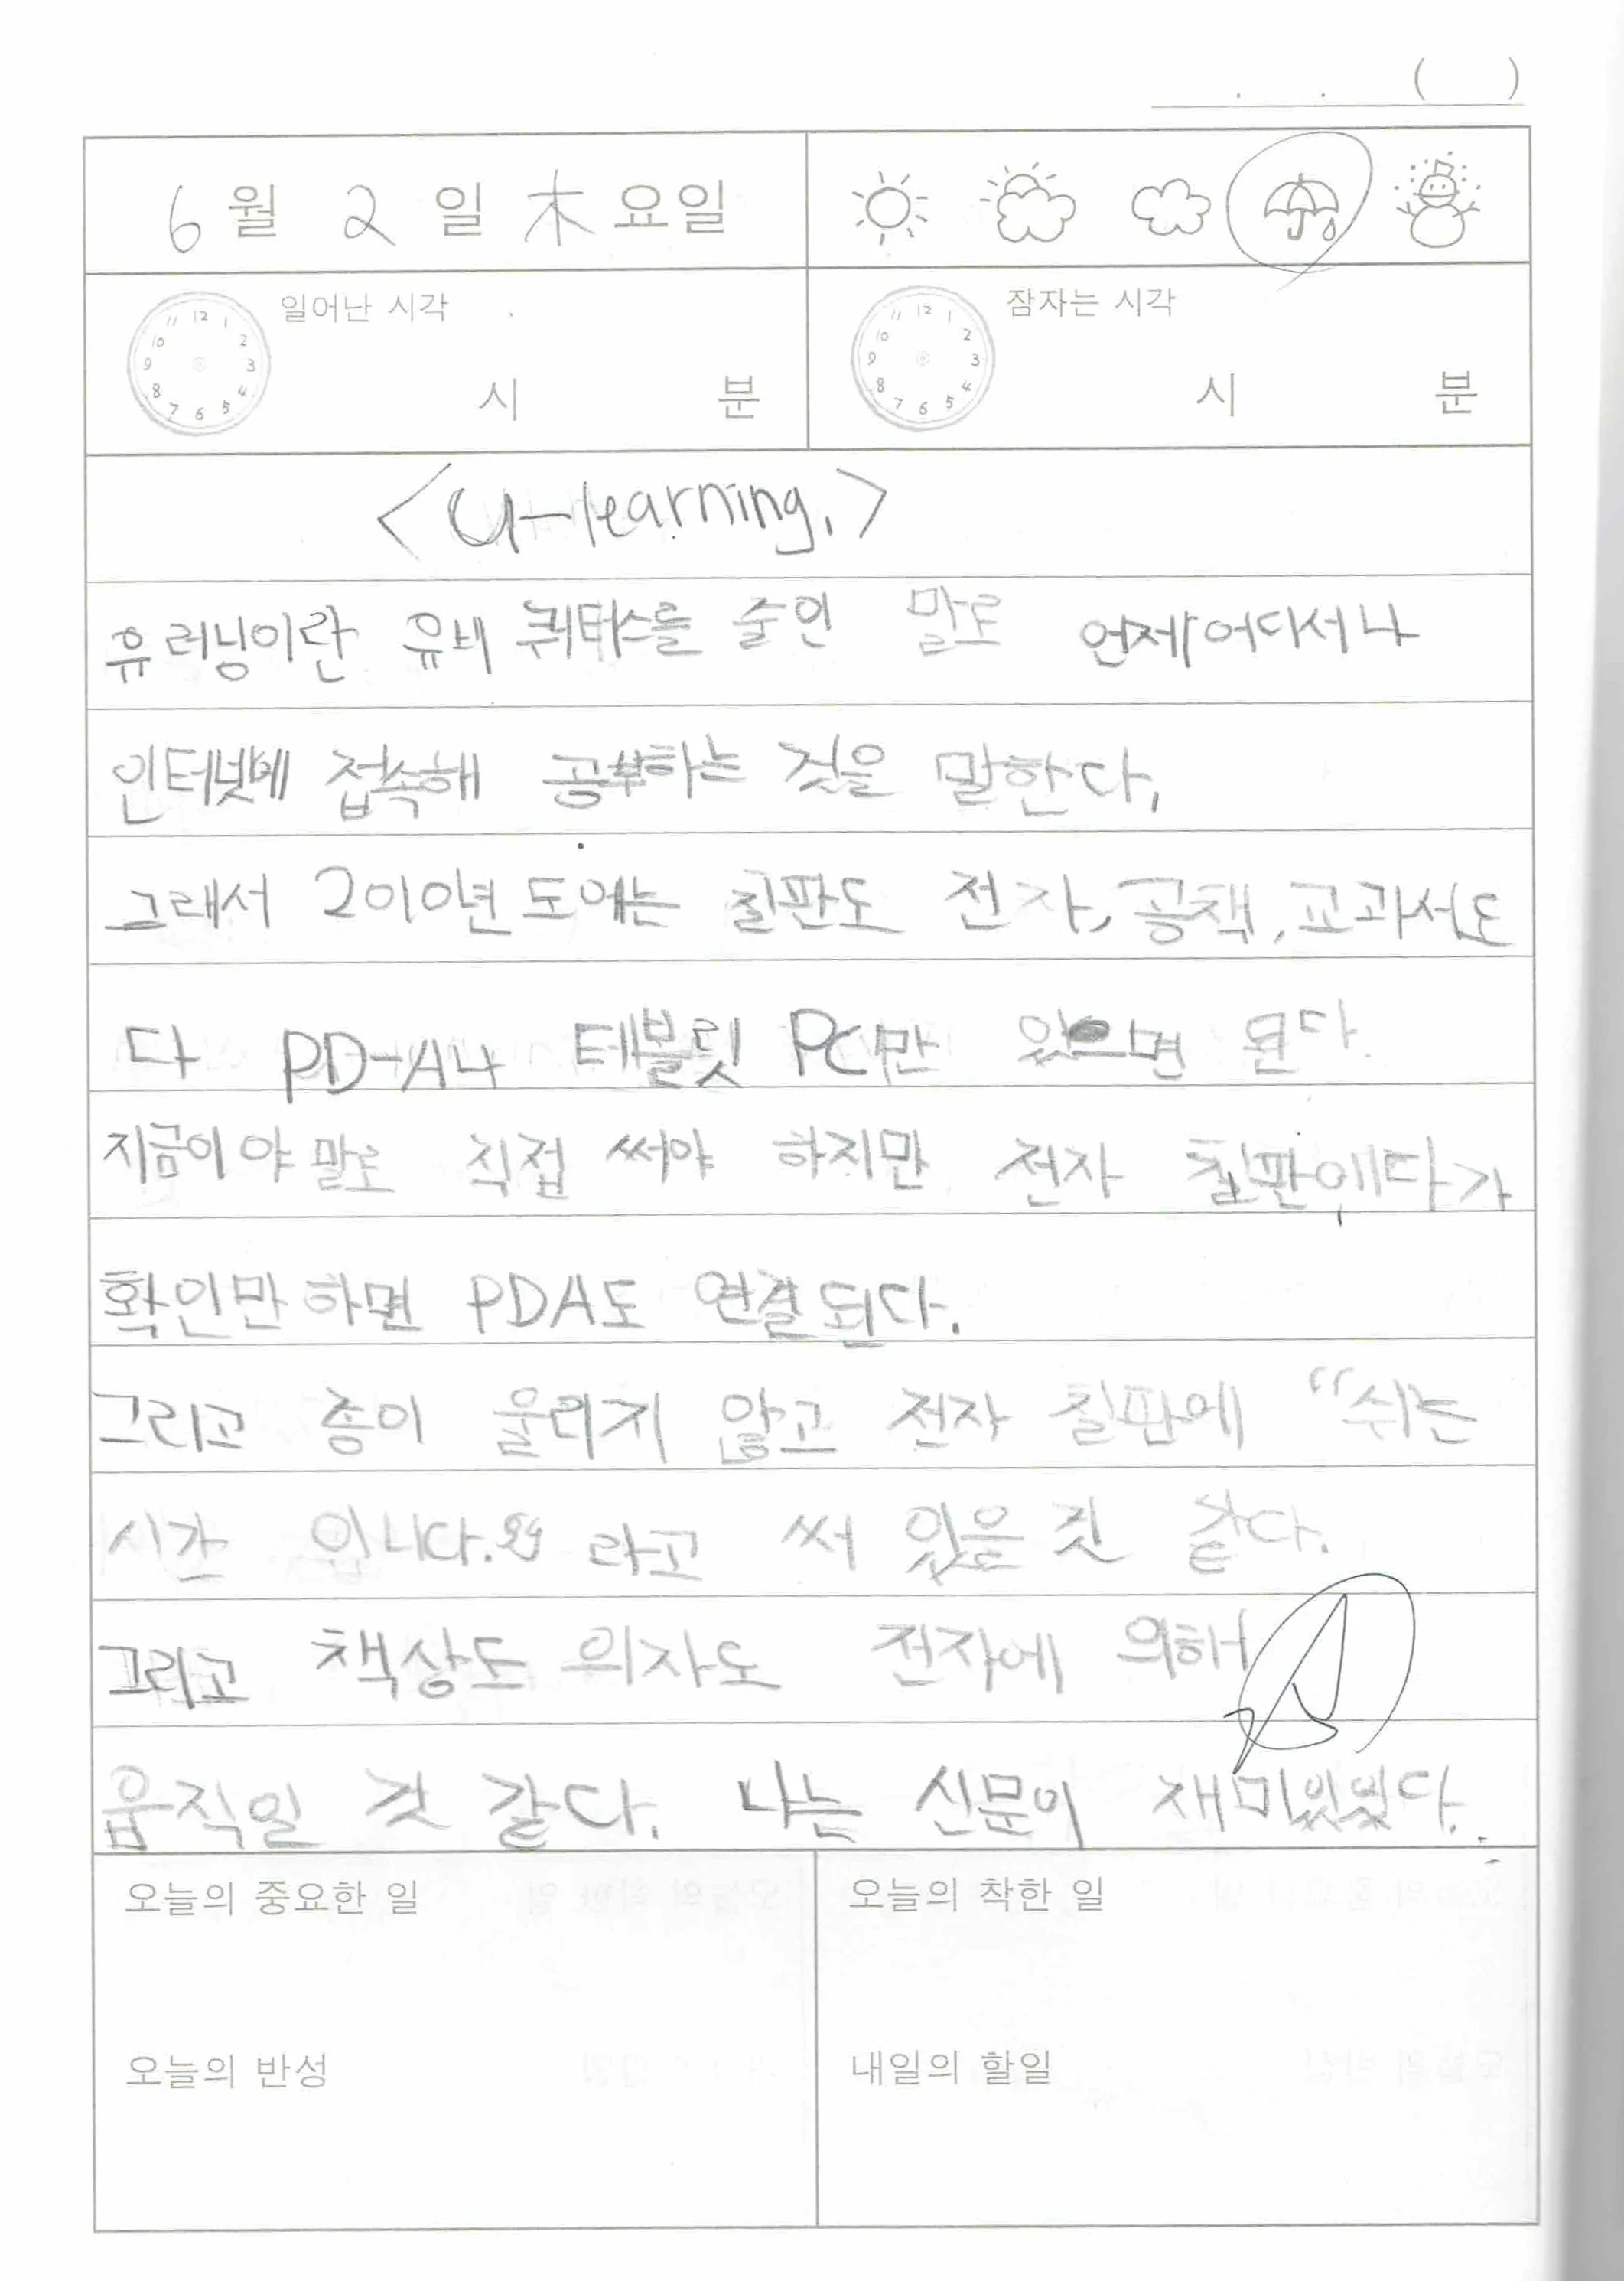 . . ( )
6월 2일 木요일
일어난 시각
시 분
잠자는 시각
시 분
<U-learning.>
유러닝이란 유비쿼터스를 줄인 말로 언제어디서나
인터넷에 접속해 공부하는 것을 말한다,
그래서 2010년도에는 칠판도 전자, 공책, 교과서도
다 PD-A나 테블릿 PC만 있으면 된다.
지금이야말로 직접 써야 하지만 전자 칠판에다가
확인만하면 PDA도 연결된다.
그리고 종이 울리지 않고 전자 칠판에 "쉬는
시간 입니다." 라고 써 있을 것 같다.
그리고 책상도 의자도 전자에 의해
움직일 것 같다. 나는 신문이 재미있었다.
오늘의 중요한 일
오늘의 착한 일
오늘의 반성
내일의 할일